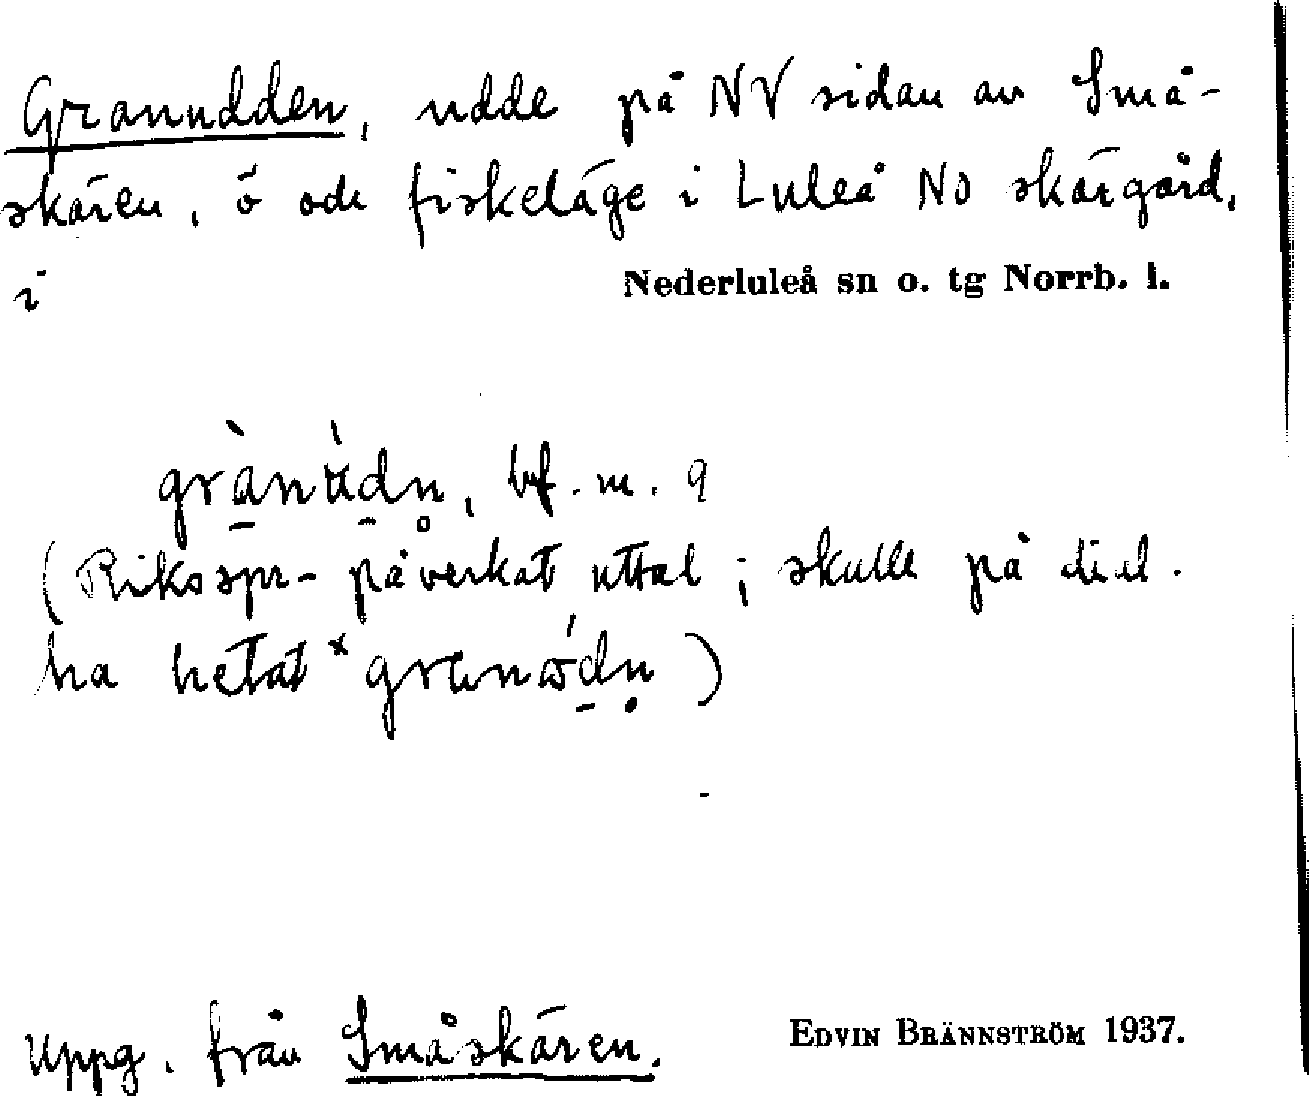 Granudden, udde på NV sidan av Små-
skären, ö och fiskeläge i Luleå NO skärgård,
i Nederluleå sn o. tg Norrb. l.
grànʉ̀dn̥, bf. m. 9
(Riksspr-påverkat uttal; skulle på dial.
ha hetat *granɷ́dṇ)
Uppg. från Småskären. EDVIN BRÄNNSTRÖM 1937.